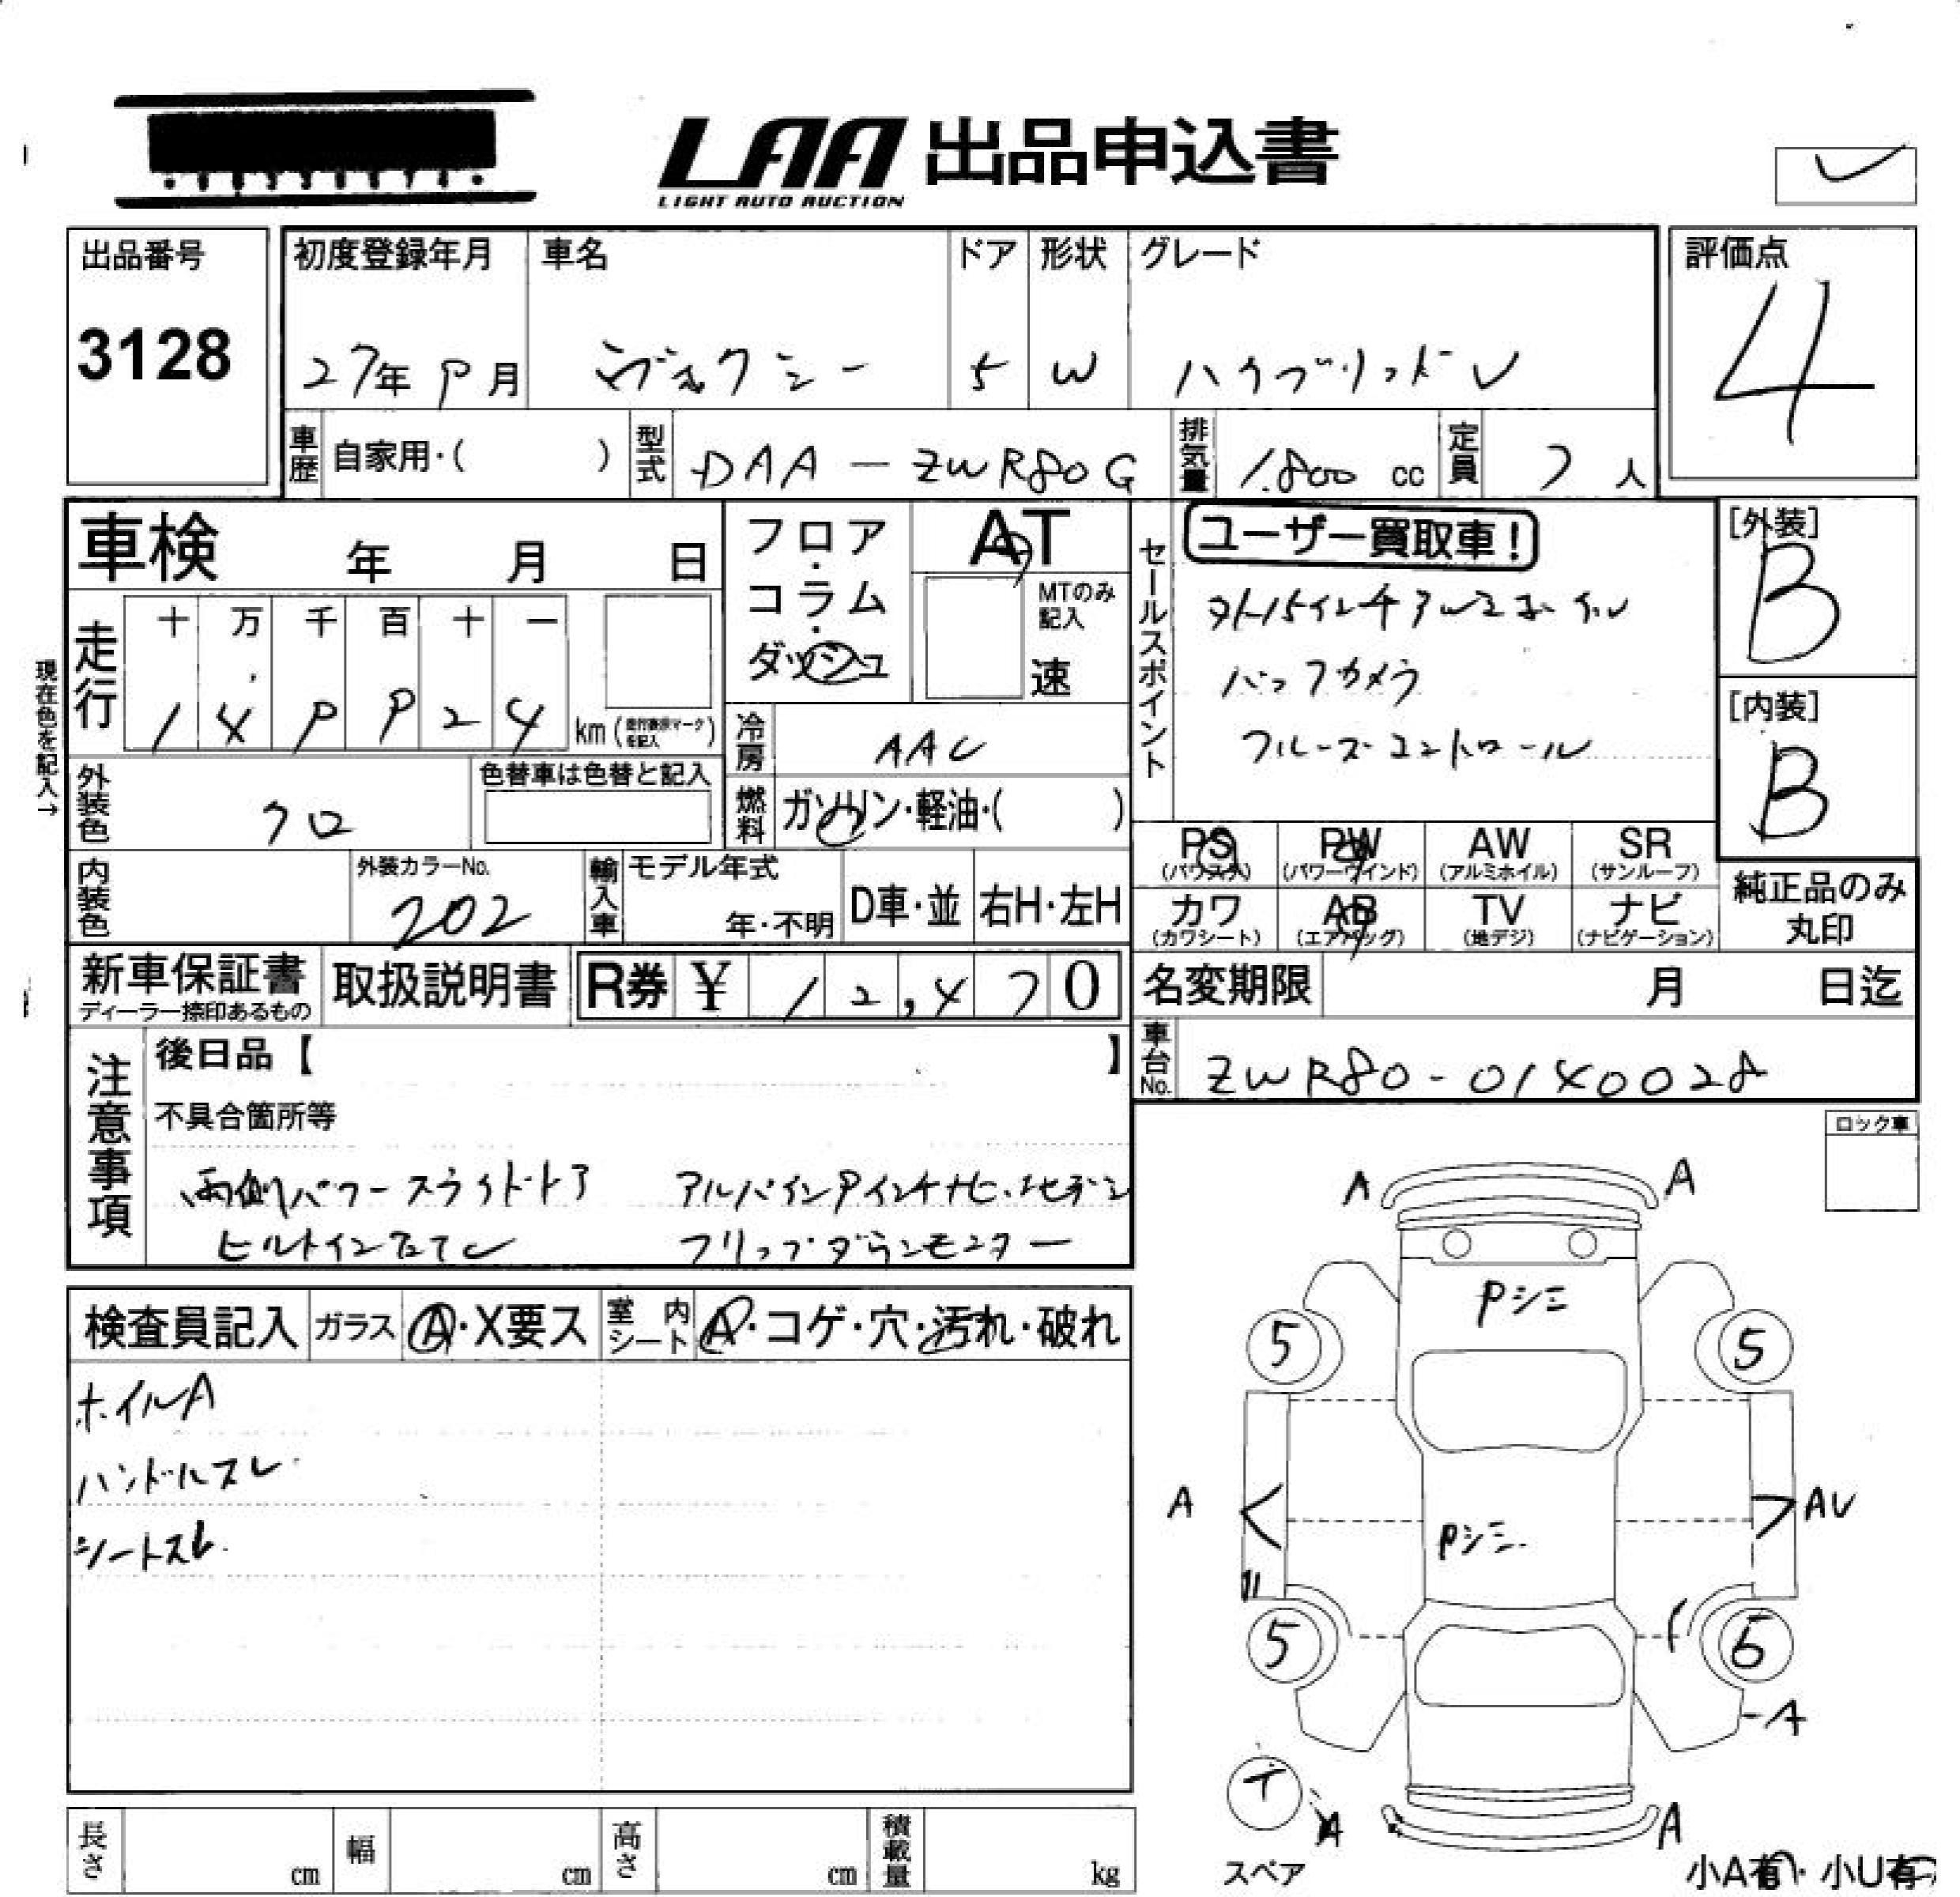 LAA 出品申込書
LIGHT AUTO AUCTION
出品番号 初度登録年月 車名 ドア 形状 グレード 評価点
3128 27年 9月 ヴォクシー 5 W ハイブリッドV 4
車歴 自家用・( ) 型式 DAA-ZWR80G 排気量 1.800 cc 定員 7 人
車検 年 月 日 フロア・コラム・ダッシュ AT
MTのみ記入 速
セールスポイント ユーザー買取車!
外15インチアルミホイル
バックカメラ
クルーズコントロール
[外装] B
[内装] B
現在色を記入→
走行 十 万 千 百 十 一
1 4 9 9 2 4 km (走行表示マークを記入)
冷房 AAC
外装色 クロ 色替車は色替と記入
燃料 ガソリン・軽油・( )
PS AW SR PW
(パワステ) (パワーウインド) (アルミホイル) (サンルーフ)
内装色 外装カラーNo. 202 輸入車 モデル年式 年・不明 D車・並 右H・左H
カワ AB TV ナビ
(カワシート) (エアバッグ) (地デジ) (ナビゲーション)
純正品のみ丸印
新車保証書 ディーラー捺印あるもの 取扱説明書 R券 ¥ 12,470
名変期限 月 日迄
車台No. ZWR80-0140028
注意事項 後日品【 】
不具合箇所等
両側パワースライドドア アルパイン9インチナビ、地デジ
ビルトインETC フリップダウンモニター
ロック車
検査員記入 ガラス A・X要ス 室内シート A・コゲ・穴・汚れ・破れ
ホイルA
ハンドルスレ
シートスレ
A A
Pシミ
5 5
A AU
Pシミ
5 5
A
テ
A A
スペア
小A有・小U有
長さ cm 幅 cm 高さ cm 積載量 kg